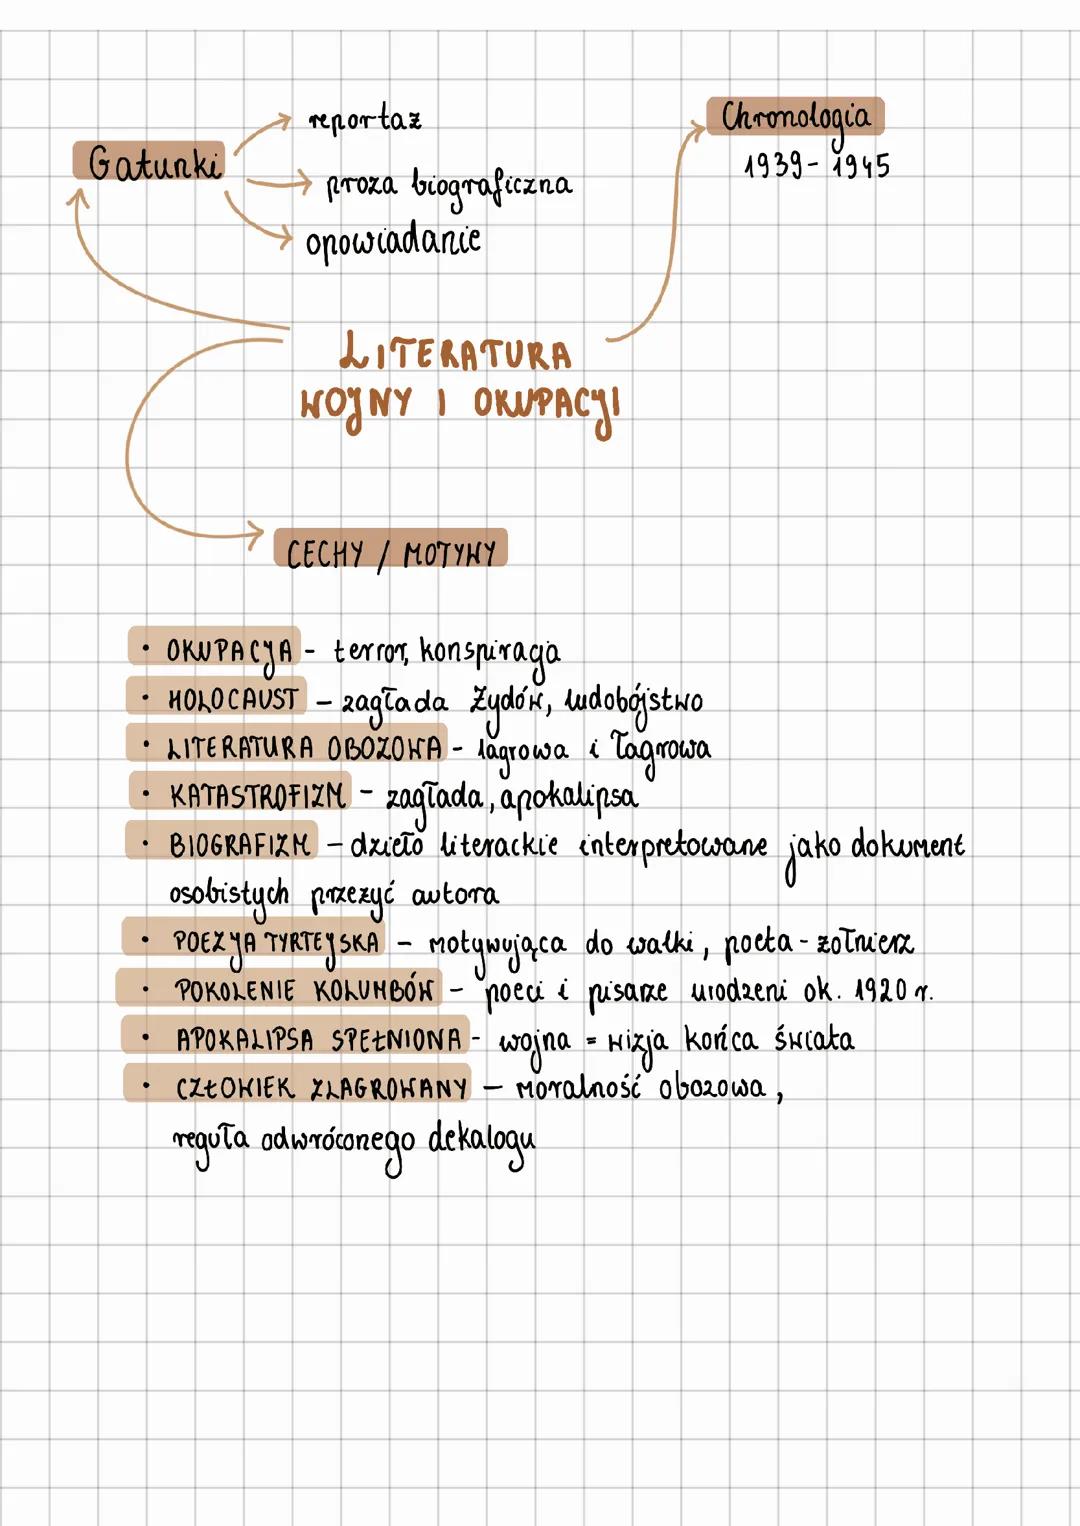 Gatunki
reportaż
proza biograficzna
opowiadanie
Chronologia
1939-1945
LITERATURA
WOJNY I OKUPACJI
CECHY / MOTYWY
• OKUPACJA - terror, konspiracja
• HOLOCAUST - zagłada Żydów, ludobójstwo
• LITERATURA OBOZOWA - lagrowa i łagrowa
• KATASTROFIZM - zagłada, apokalipsa
• BIOGRAFIZM - dzieło literackie interpretowane jako dokument
osobistych przeżyć autora
• POEZJA TYRTEJSKA - motywująca do walki, poeta - żołnierz
• POKOLENIE KOLUMBÓW - poeci i pisarze urodzeni ok. 1920 r.
• APOKALIPSA SPEŁNIONA - wojna = wizja końca świata
• CZŁOWIEK ZLAGROWANY - moralność obozowa,
reguła odwróconego dekalogu